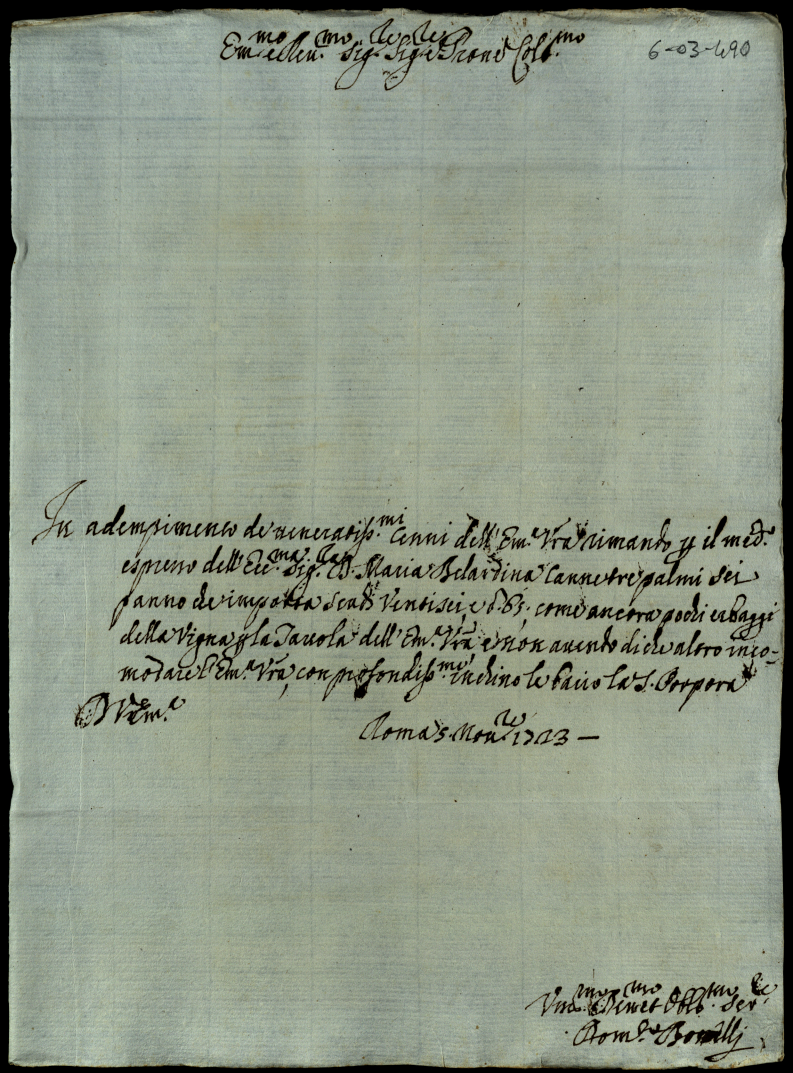 Em.mo e Reu.mo Sig.re Sig.re e Prone Col.mo
6-03-490
In adempimento de veneratiss.mi Cenni dell'Em.a Vra rimando p il med.o
espresso dell'Ecc.ma Sig.ra D. Maria Belardina Canne tre palmi sei
panno che importa Scudi Ventisei, e b. 65. come ancora pochi erbaggi
della Vigna p la Tauola dell'Em.a Vra e non auendo di che altro inco-
modare l'Em.a Vra, con profondiss.mo inchino le bacio la S. Porpora
D V. Em.a
Roma 5. Nou.re 1723 —
Um.mo Deu.mo et Obb.mo Ser.re